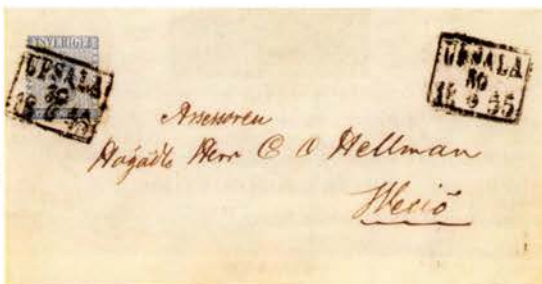 SVERIGE
UPSALA
30
18 9 55
UPSALA
30
18 9 55
Assessoren
Högädle Herr C O Hellman
Wexiö